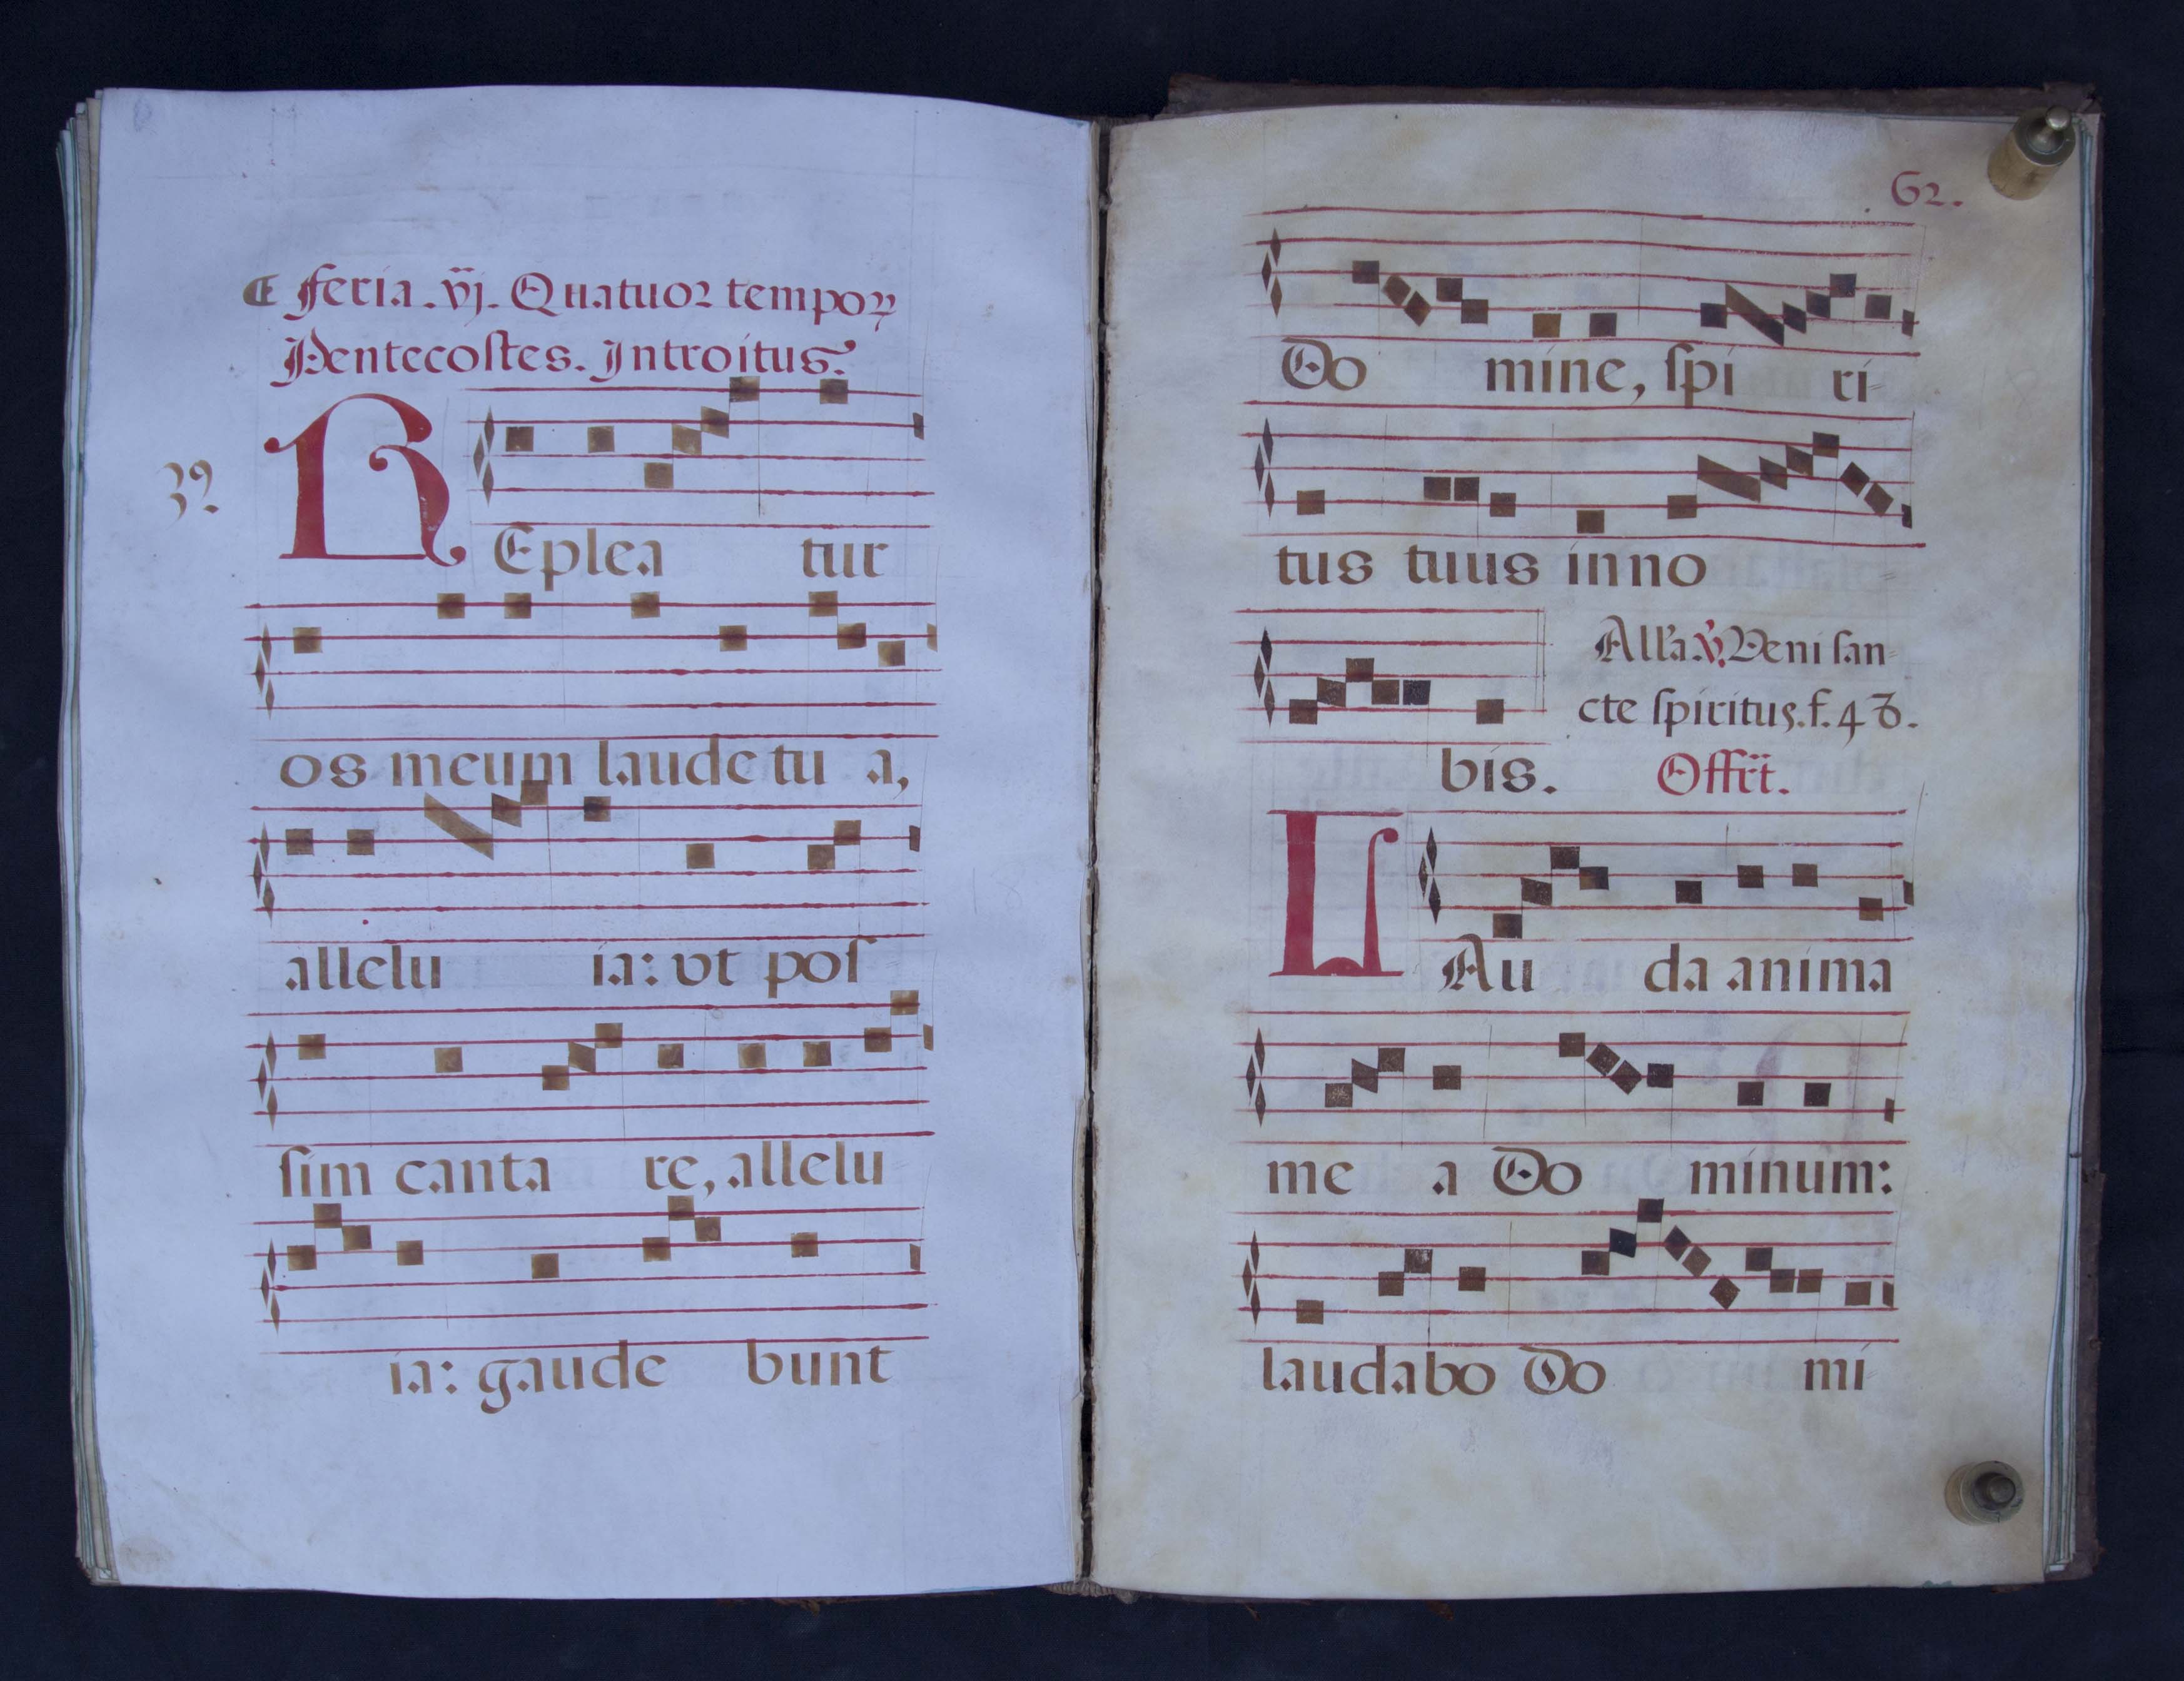 feria. vj. Quatuor tempoꝝ
Pentecostes. Introitus.
3.
REplea tur
os meum laude tu a,
allelu ia: vt pos
sim canta re, allelu
ia: gaude bunt
62.
Do mine, spi ri-
tus tuus in no
bis.
All'a. ℣. Veni san-
cte spiritus. f. 48.
Offrt.
LAu da anima
me a Do minum:
laudabo Do mi-